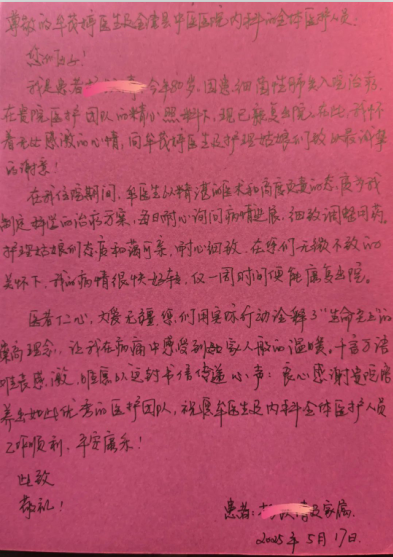 尊敬的牟茂婷医生及金堂县中医医院内科的全体医护人员:
您们好!
我是患者 今年80岁,因患细菌性肺炎入院治疗,
在贵院医护团队的精心照料下,现已康复出院。在此,我怀
着无比感激的心情,向牟茂婷医生及护理姑娘们致以最诚挚
的谢意!
在我住院期间,牟医生以精湛的医术和高度负责的态度为我
制定科学的治疗方案,每日耐心询问病情进展,细致调整用药。
护理姑娘们态度和蔼可亲,耐心细致,在你们无微不致的
关怀下,我的病情很快好转,仅一周时间便能康复出院。
医者仁心,大爱无疆,你们用实际行动诠释了"生命至上"的
崇高理念,让我在病痛中感受到如家人般的温暖。千言万语
难表感激,唯愿以这封书信传递心声:衷心感谢贵院培
养出如此优秀的医护团队,祝愿牟医生及内科全体医护人员
工作顺利、平安康乐!
此致
敬礼!
患者: 及家属
2025年5月17日.